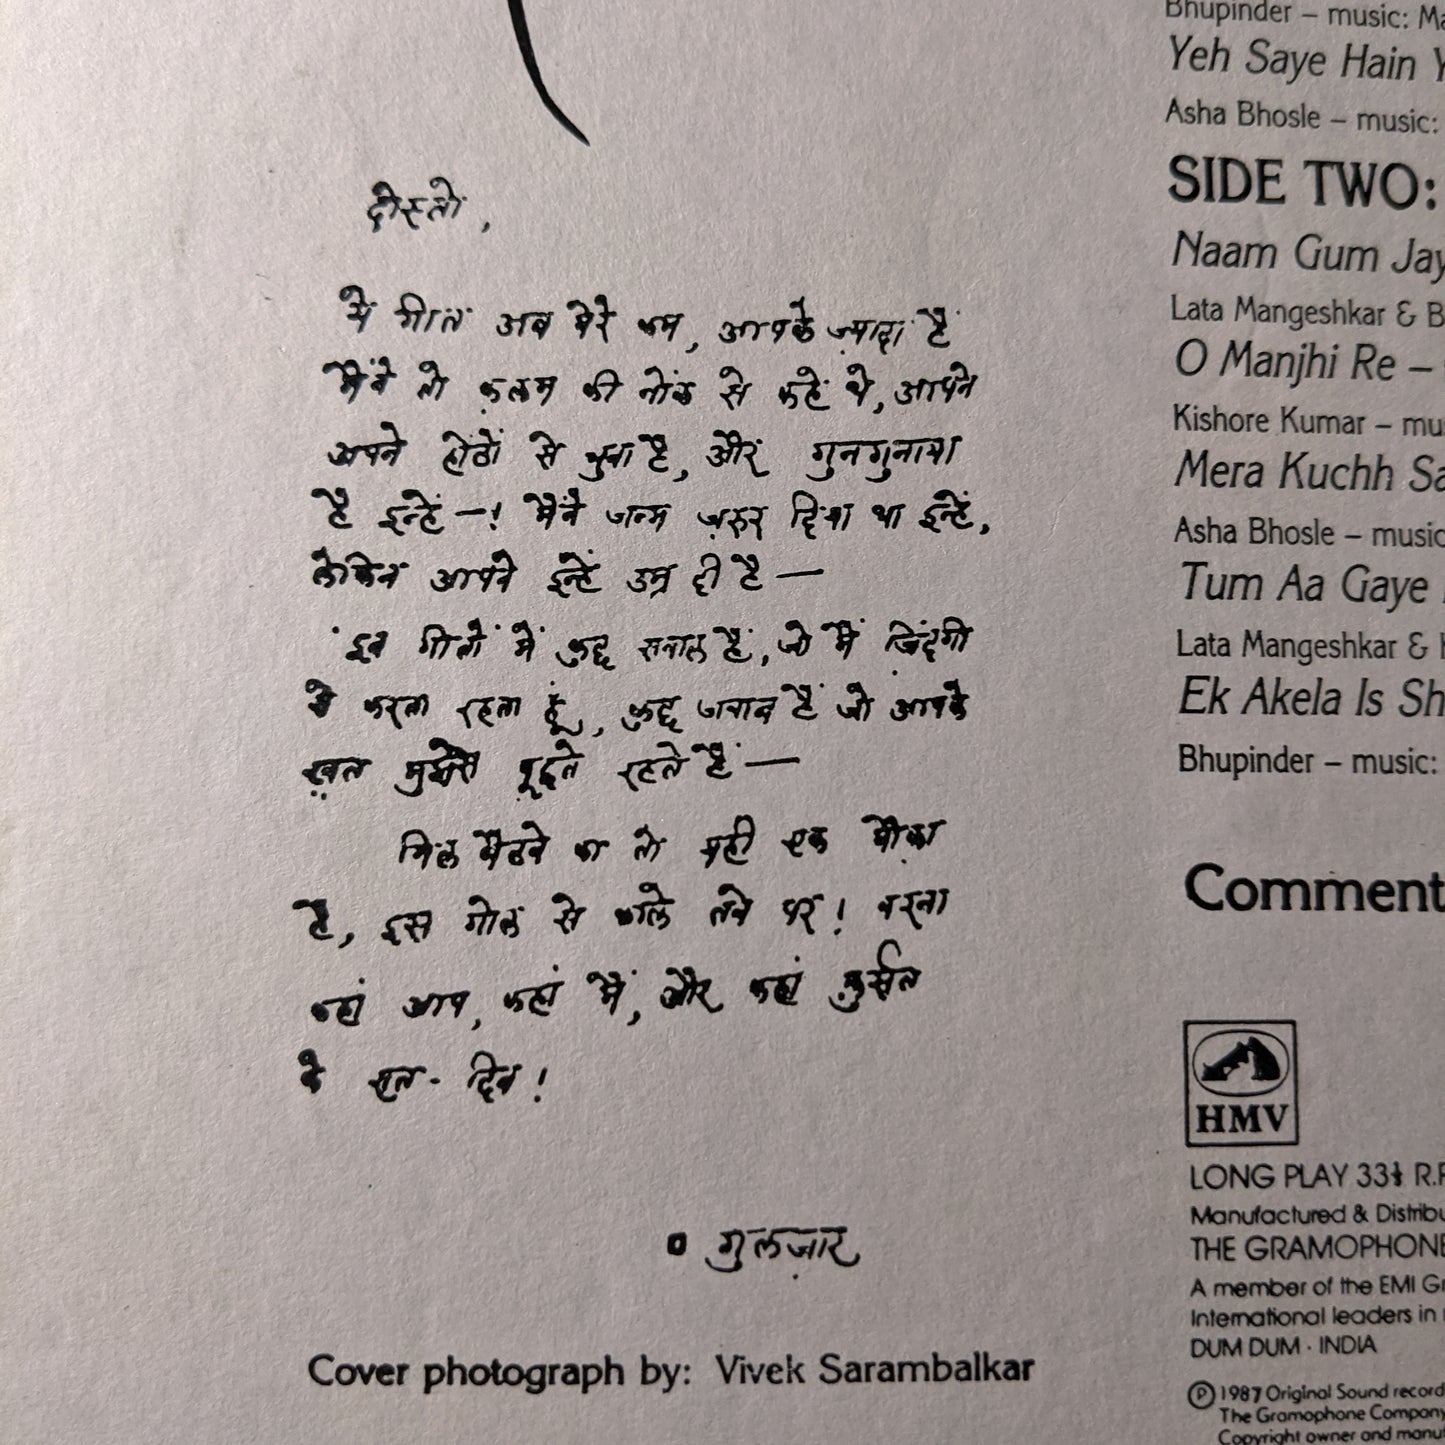 दोस्तो,
ये गीत अब मेरे कम, आपके ज़्यादा हैं
मैंने तो क़लम की नोंक से कहे थे, आपने
अपने होंठों से चुना है, और गुनगुनाया
है इन्हें —! मैंने जन्म ज़रूर दिया था इन्हें,
लेकिन आपने इन्हें उम्र दी है —
इन गीतों में कुछ सवाल हैं, जो मैं ज़िंदगी
से करता रहता हूं, कुछ जवाब हैं जो आपके
ख़त मुझसे पूछते रहते हैं —
मिल बैठने का तो यही एक मौक़ा
है, इस गोल से काले तवे पर! वरना
कहां आप, कहां मैं, और कहां फ़ुर्सत
के रात-दिन!
गुलज़ार
Cover photograph by: Vivek Sarambalkar
Bhupinder – music:
Yeh Saye Hain
Asha Bhosle – music:
SIDE TWO:
Naam Gum
Lata Mangeshkar &
O Manjhi Re –
Kishore Kumar –
Mera Kuchh
Asha Bhosle –
Tum Aa Gaye
Lata Mangeshkar &
Ek Akela Is
Bhupinder – music:
HMV
LONG PLAY 33⅓
Manufactured &
THE GRAMOPHONE
A member of the EMI
International leaders in
DUM DUM · INDIA
℗ 1987 Original Sound
The Gramophone Company
Copyright owner and